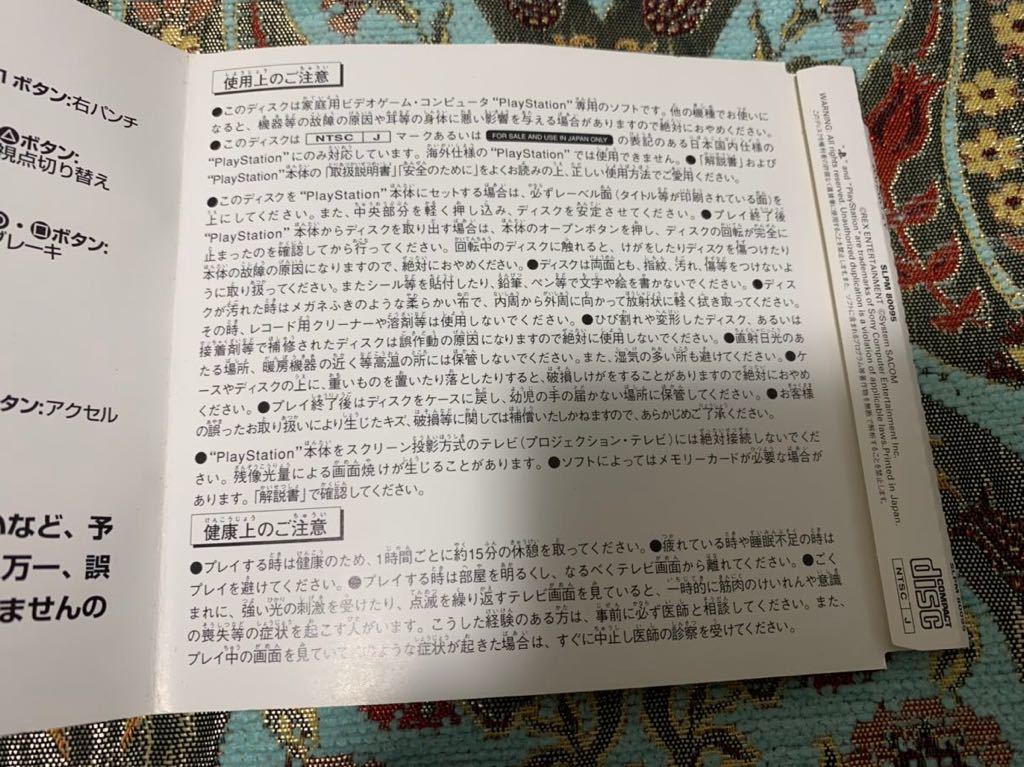 1ボタン:右パンチ
ボタン:
視点切り替え
・■ボタン:
ブレーキ
タン:アクセル
いなど、予
万一、誤
ませんの
使用上のご注意
●このディスクは家庭用ビデオゲーム・コンピュータ“PlayStation”専用のソフトです。他の機種でお使いに
なると、機器等の故障の原因や耳等の身体に悪い影響を与える場合がありますので絶対におやめください。
●このディスクは NTSC J マークあるいは FOR SALE AND USE IN JAPAN ONLY の表記のある日本国内仕様の
“PlayStation”にのみ対応しています。海外仕様の“PlayStation”では使用できません。●「解説書」および
“PlayStation”本体の「取扱説明書」「安全のために」をよくお読みの上、正しい使用方法でご愛用ください。
●このディスクを“PlayStation”本体にセットする場合は、必ずレーベル面(タイトル等が印刷されている面)を
上にしてください。また、中央部分を軽く押し込み、ディスクを安定させてください。●プレイ終了後
“PlayStation”本体からディスクを取り出す場合は、本体のオープンボタンを押し、ディスクの回転が完全に
止まったのを確認してから行ってください。回転中のディスクに触れると、けがをしたりディスクを傷つけたり
本体の故障の原因になりますので、絶対におやめください。●ディスクは両面とも、指紋、汚れ、傷等をつけないよ
うに取り扱ってください。またシール等を貼付したり、鉛筆、ペン等で文字や絵を書かないでください。●ディス
クが汚れた時はメガネふきのような柔らかい布で、内周から外周に向かって放射状に軽く拭き取ってください。
その時、レコード用クリーナーや溶剤等は使用しないでください。●ひび割れや変形したディスク、あるいは
接着剤等で補修されたディスクは誤作動の原因になりますので絶対に使用しないでください。●直射日光のあ
たる場所、暖房機器の近く等高温の所には保管しないでください。また、湿気の多い所も避けてください。●ケ
ースやディスクの上に、重いものを置いたり落としたりすると、破損しけがをすることがありますので絶対におやめ
ください。●プレイ終了後はディスクをケースに戻し、幼児の手の届かない場所に保管してください。●お客様
の誤ったお取り扱いにより生じたキズ、破損等に関しては補償いたしかねますので、あらかじめご了承ください。
●“PlayStation”本体をスクリーン投影方式のテレビ(プロジェクション・テレビ)には絶対接続しないでくだ
さい。残像光量による画面焼けが生じることがあります。●ソフトによってはメモリーカードが必要な場合が
あります。「解説書」で確認してください。
健康上のご注意
●プレイする時は健康のため、1時間ごとに約15分の休憩を取ってください。●疲れている時や睡眠不足の時は
プレイを避けてください。●プレイする時は部屋を明るくし、なるべくテレビ画面から離れてください。●ごく
まれに、強い光の刺激を受けたり、点滅を繰り返すテレビ画面を見ていると、一時的に筋肉のけいれんや意識
の喪失等の症状を起こす人がいます。こうした経験のある方は、事前に必ず医師と相談してください。また、
プレイ中の画面を見ていてこのような症状が起きた場合は、すぐに中止し医師の診察を受けてください。
SLPM 80095
©REX ENTERTAINMENT ©System SACOM
" " and "PlayStation" are trademarks of Sony Computer Entertainment Inc.
WARNING: All rights reserved. Unauthorized duplication is a violation of applicable laws. Printed in Japan.
COMPACT
disc
NTSC J